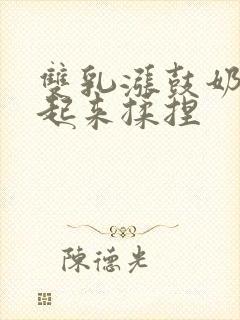 雙乳漲鼓奶
起来揉捏
陳德光